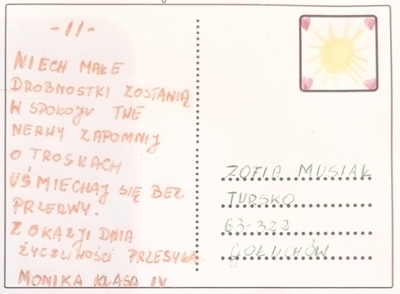 -11-
NIECH MAŁE
DROBNOSTKI ZOSTANIĄ
W SPOKOJU TWE
NERWY ZAPOMNIJ
O TROSKACH
UŚMIECHAJ SIĘ BEZ
PRZERWY.
Z OKAZJI DNIA
ŻYCZLIWOŚCI PRZESYŁA
MONIKA KLASA IV
ZOFIA MUSIAŁ
TURSKO
63-322
GOŁUCHÓW